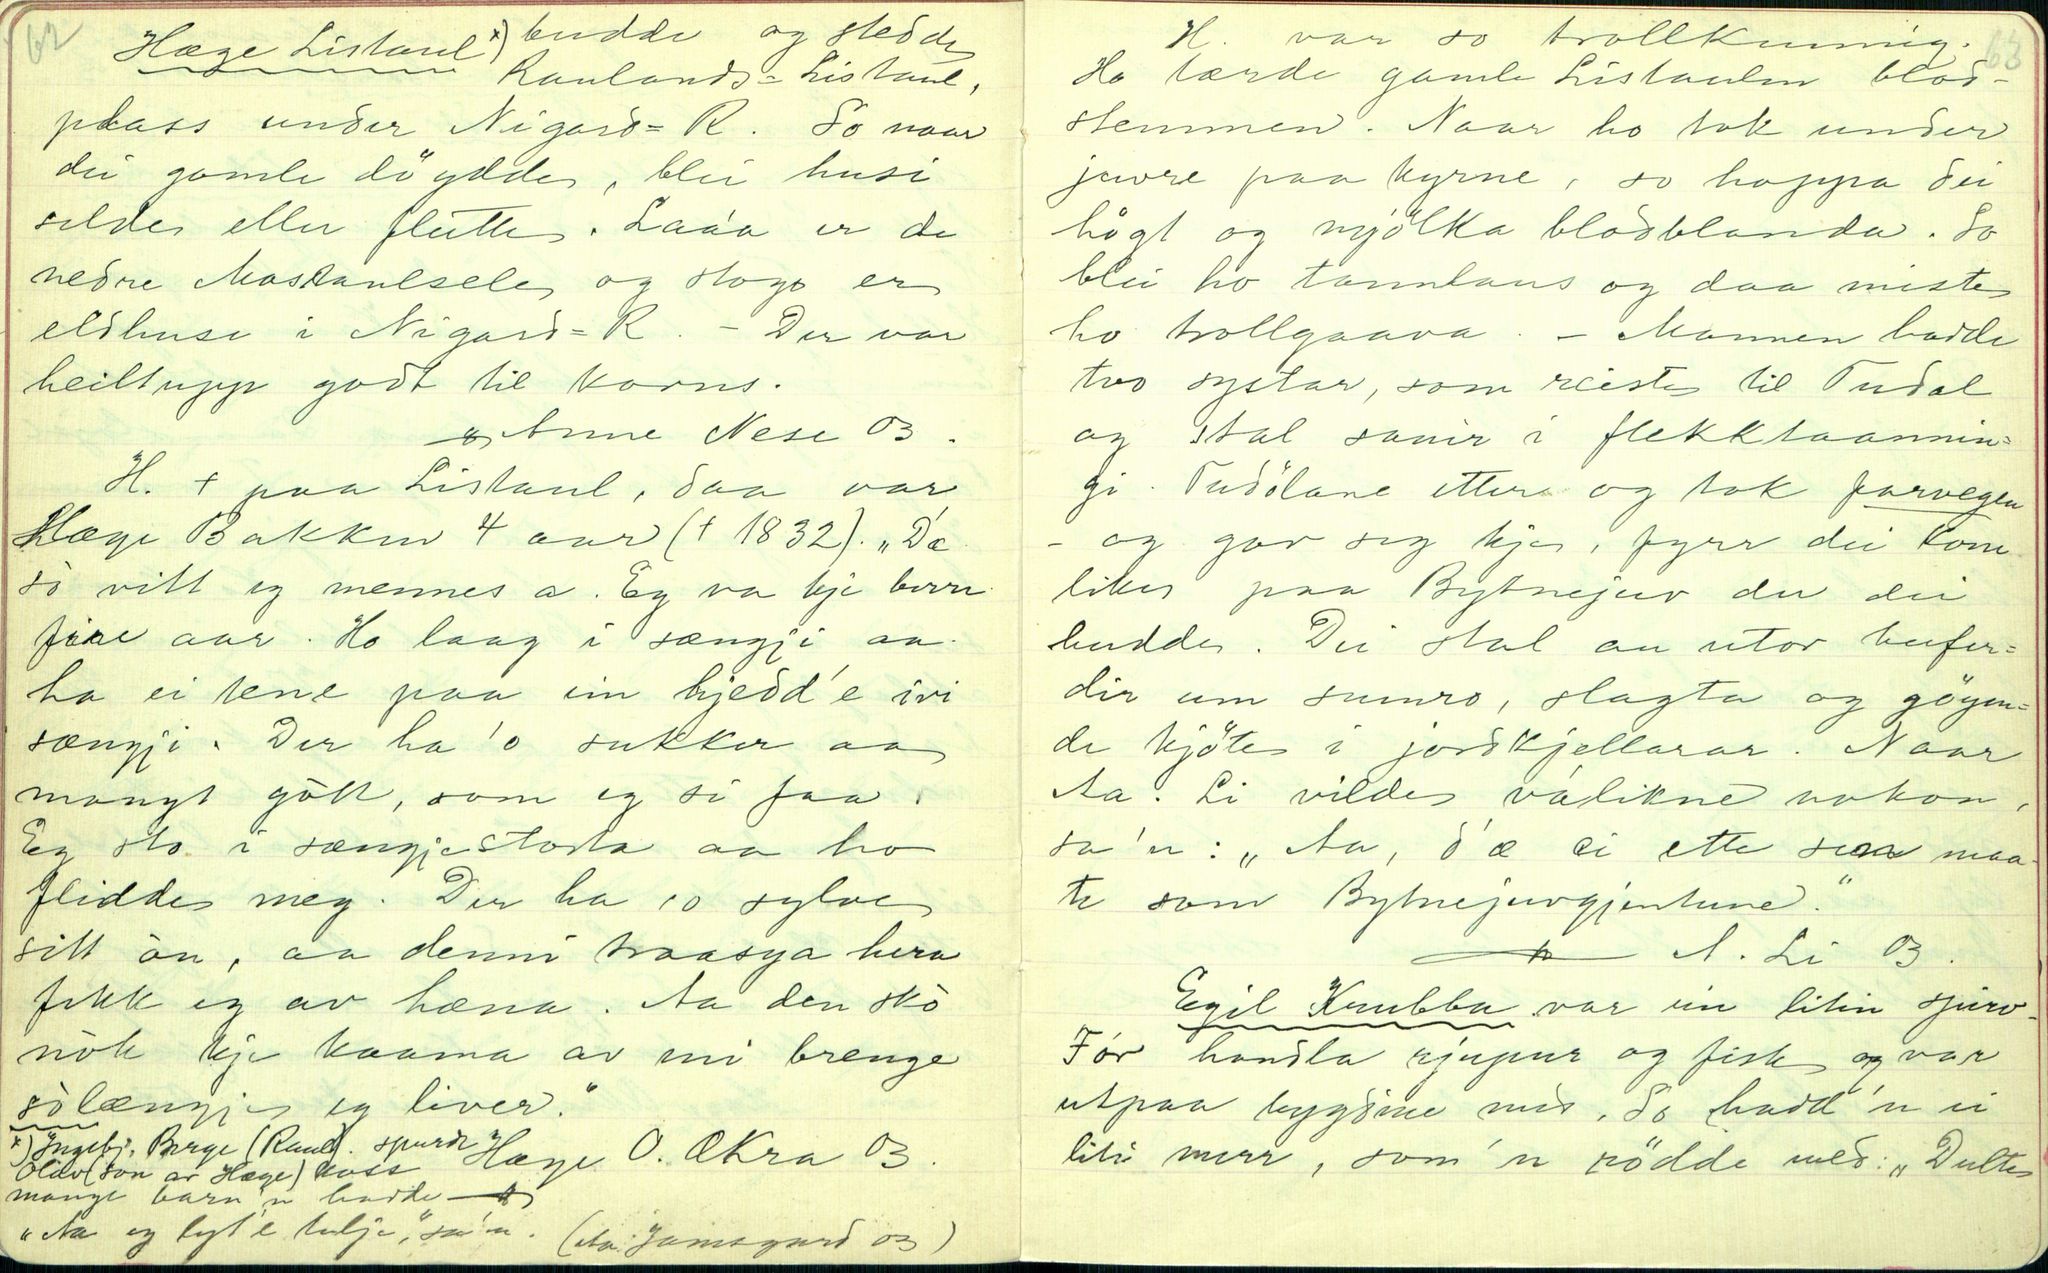 62
Hæge Listaul x) budde og stedde
Raulands=Listaul,
plass under Nigard=R. So naar
dei gamle döydde, blei husi
selde eller flutte. Laaa er de
nedre Mostaulsele og stogo er
eldhuse i Nigard=R. – Der var
heiltupp godt til korns.
Anne Nese 03.
H. † paa Listaul, daa var
Hæge Bakken 4 aar († 1832). „Dæ
so vitt eg mennes a. Eg va kje berre
fire aar. Ho laag i sængji aa
ha ei tene paa ein hjedd'e ivi
sængji. Der ha'o sukker aa
mangt gött, som eg si faa.
Eg sto i sængjestoda aa ho
fliddde meg. Der ha 'o sylve
sitt òn, aa denni traasya hera
fekk eg av hæna. Aa den skò
nòk kje kaama av mi brenge
sòlængje eg liver."
Hæge O. Ækra 03.
x) Ingebj. Berge (Raul). spurde
Olav (son av Hæge) koss
mange barn 'n hadde
„Aa eg lyt'e telje," sa'n. (Aa. Jamsgard 03)
63
H. var so trollkunnig.
Ho lærde gamle Listaulen blod-
stemmen. Naar ho tok under
juvre paa kyrne, so hoppa dei
högt og mjölka blodblanda. So
blei ho tannlaus og daa miste
ho trollgaava. – Mannen hadde
tvo systar, som reiste til Tudal
og stal sauir i flekktaamin=
gi. Tudölane ettere og tok farvegen
– og gav seg kje, fyrr dei kom
likes paa Bytnejuv der dei
budde. Dei stal au utor bufer=
dir um sumro, slagta og göym=
de kjöte i jordkjellarar. Naar
Aa. Li vilde válikne nokon,
sa'n: „Aa, d'æ ei ette sea maa-
te som Bytnejuvgjentune."
A. Li 03.
Egil Krubba var ein liten spirv.
Fór handla rjupur og fisk og var
utpaa bygdine med. So hadd'n ei
liti merr, som'n rödde med: „Dulte